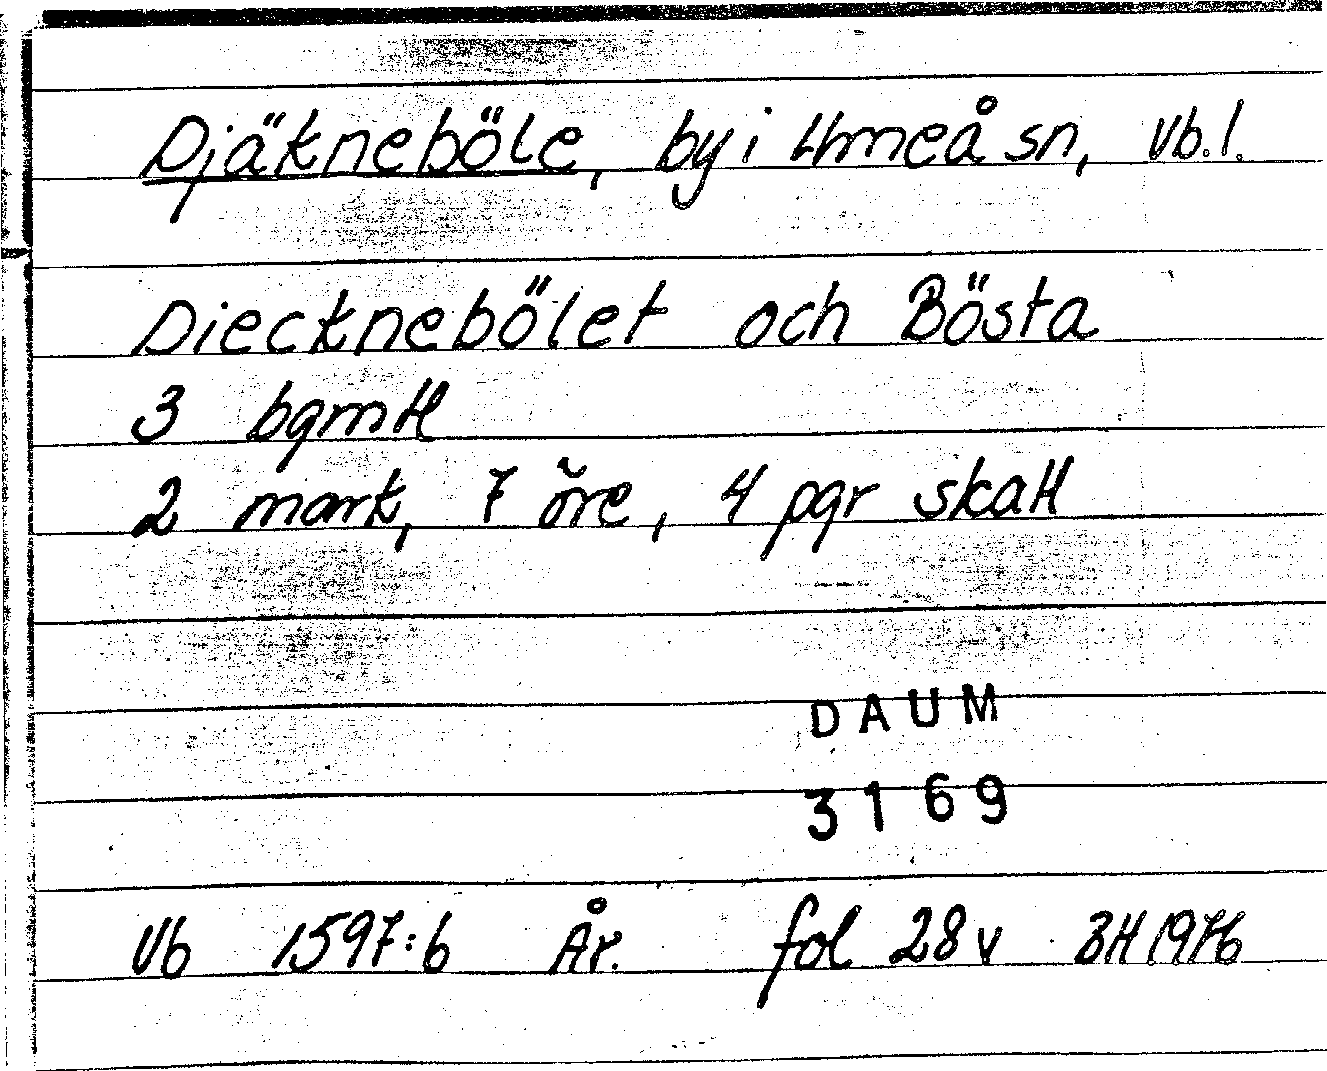 Djäkneböle, by i Umeå sn, Vb.l.
Diecknebölet och Bösta
3 bgmtl
2 mark, 7 öre, 4 pgr skatt
DAUM
3169
Vb 1597:6 År. fol 28 v BH 1976